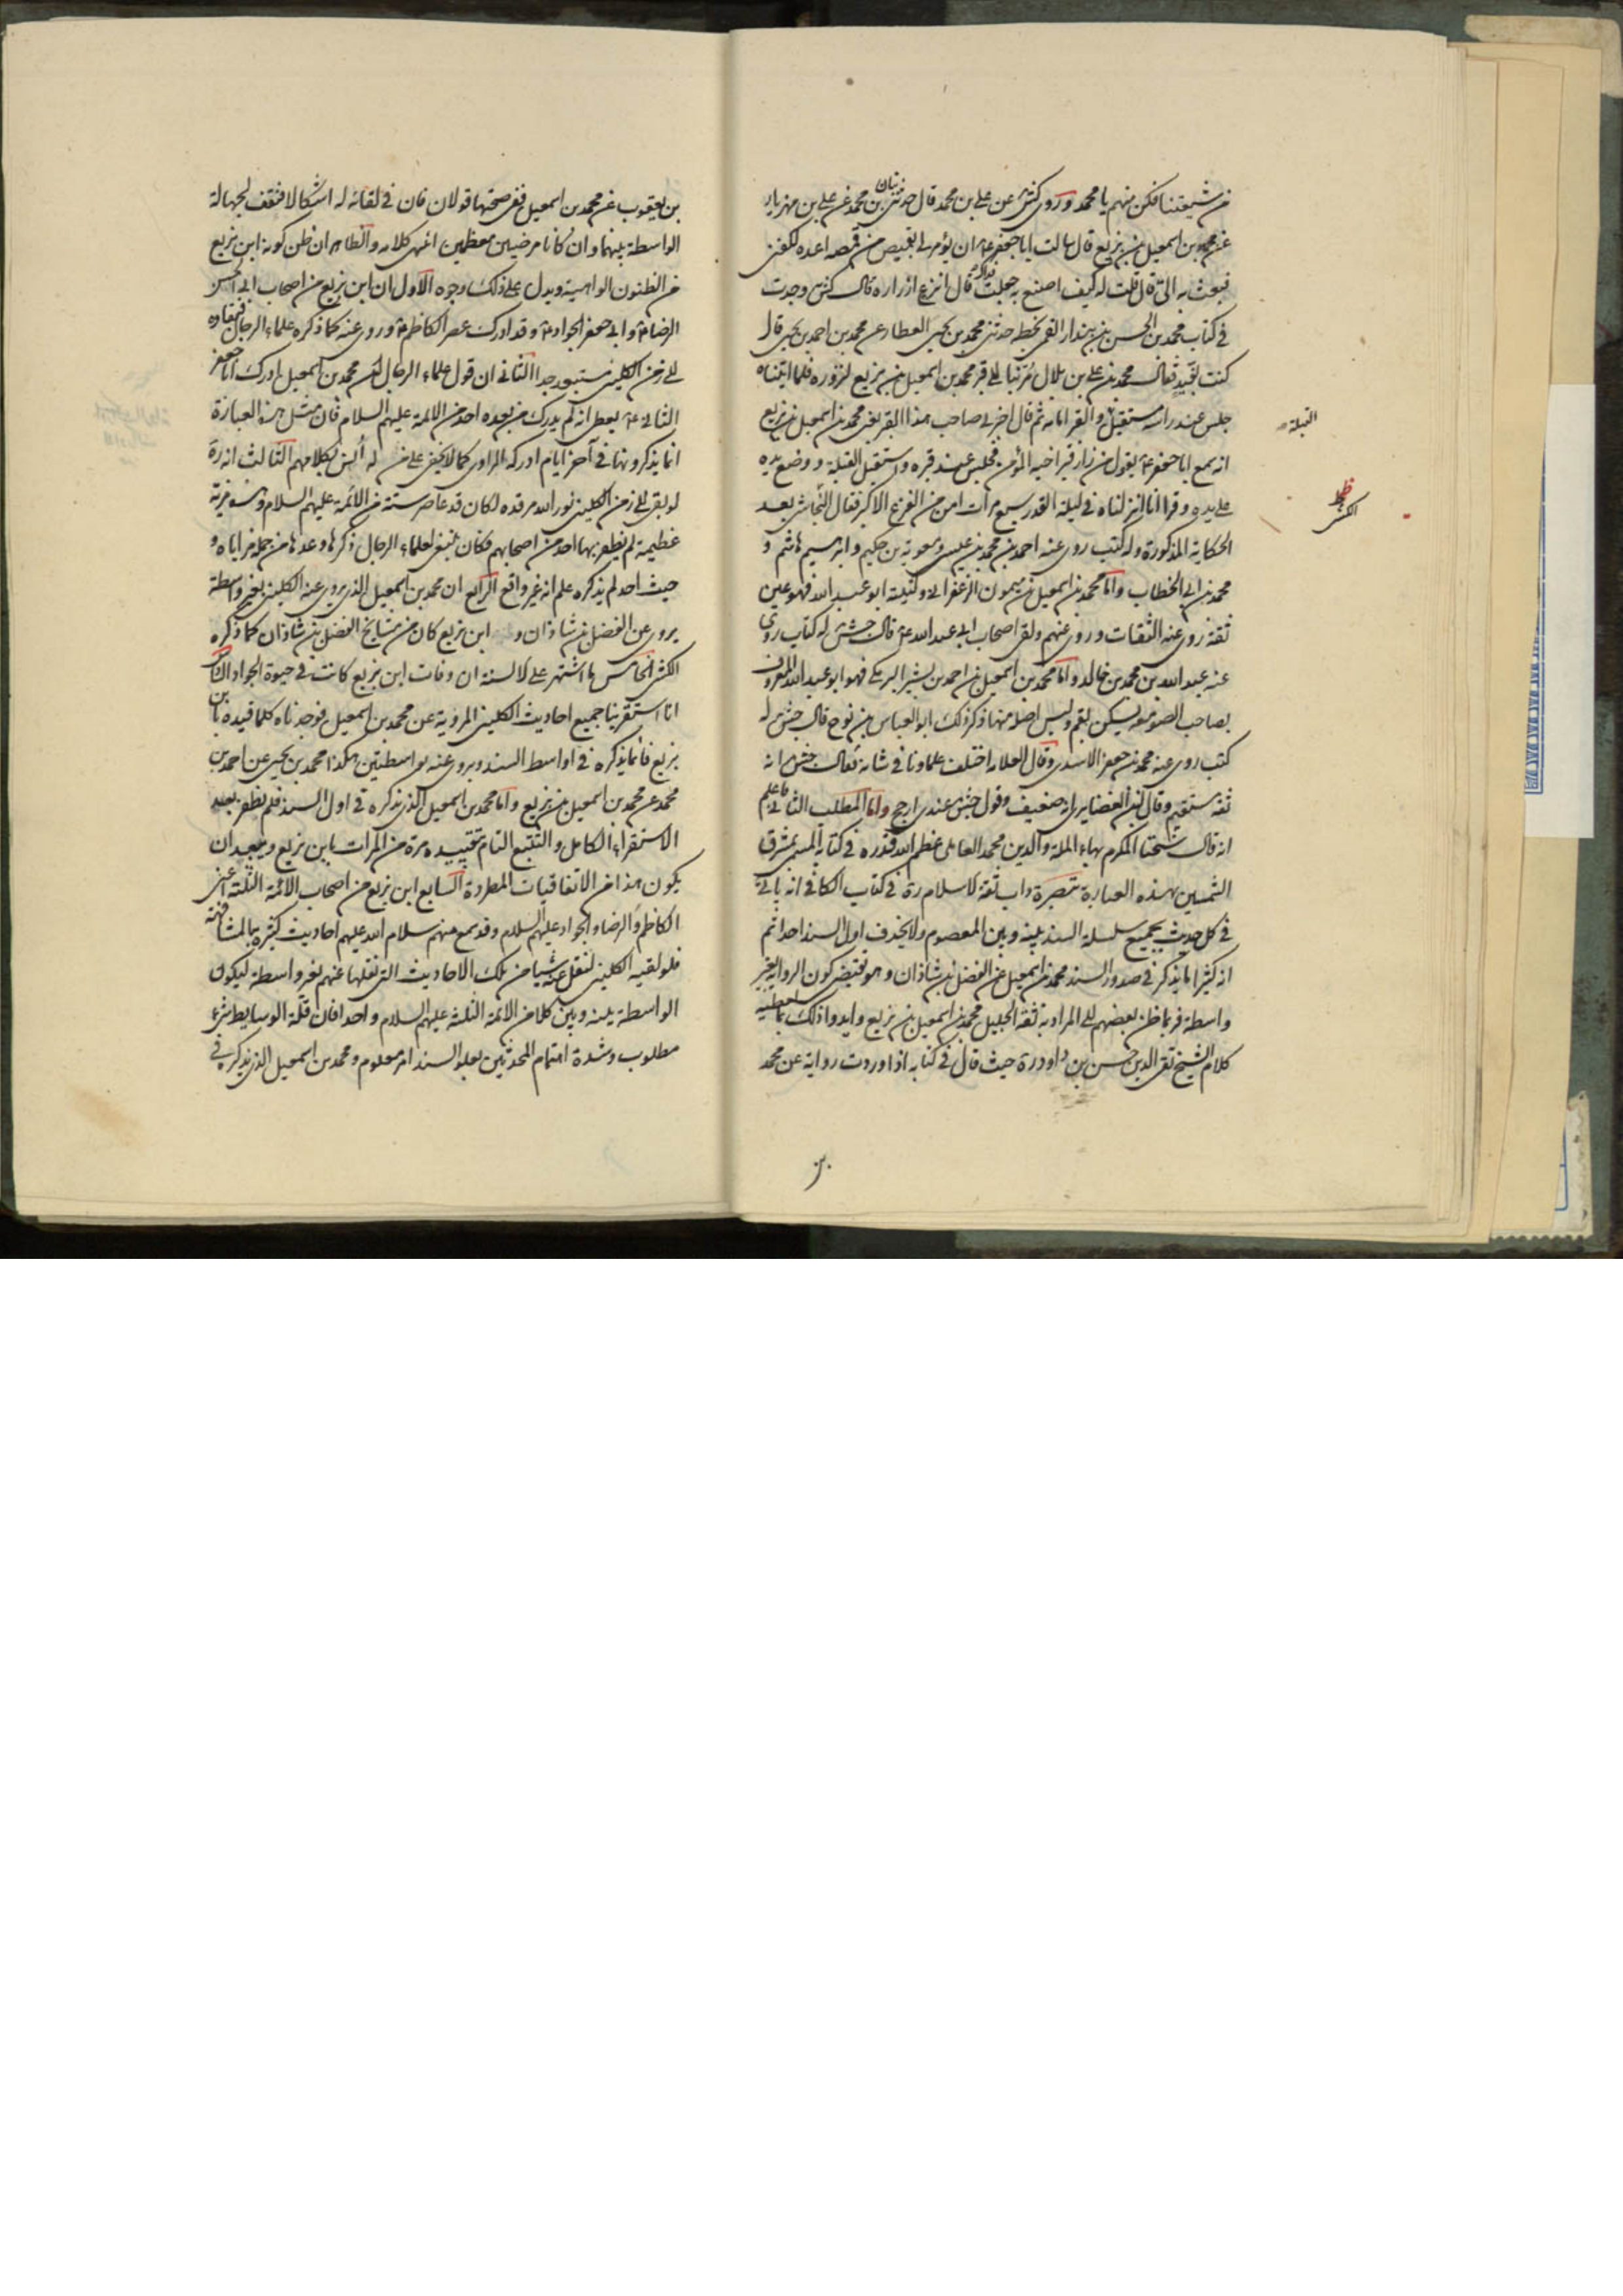 من شيعتنا فكن منهم يا محمد وروى كش عن علي بن محمد قال حدثنى بنان بن محمد عن علي بن مهزيار
عن محمد بن اسمعيل بن بزيع قال سالت ابا جعفر ع ان يؤمر لي بقميص من قمصه اعده لكفنى
فبعث به الى قال قلت له كيف اصنع به جعلت فداك قال انزع ازراره قال كش وجدت
في كتاب محمد بن الحسن بن بندار القمى بخطه حدثنى محمد بن يحيى العطار عن محمد بن احمد بن يحيى قال
كنت بفيد فقال محمد بن علي بن بلال مر بنا الى قبر محمد بن اسمعيل بن بزيع لنزوره فلما اتيناه
جلس عند راسه مستقبل والقبر امامه ثم قال اخبرني صاحب هذا القبر يعنى محمد بن اسمعيل بن بزيع
انه سمع ابا جعفر ع يقول من زار قبر اخيه المؤمن فجلس عند قبره واستقبل القبلة ووضع يده
على يده وقرا انا انزلناه في ليلة القدر سبع مرات امن من الفزع الاكبر فقال النجاشى بعد
الحكاية المذكورة وله كتب روى عنه احمد بن محمد بن عيسى ومعوية بن حكيم وابرهيم هاشم و
محمد بن ابي الخطاب واما محمد بن اسمعيل بن ميمون الزعفراني وكنيته ابو عبد الله فهو عين
ثقة روى عنه الثقات وروى عنهم ولقى اصحاب ابي عبد الله ع قال جش له كتاب روى
عنه عبد الله بن محمد بن خالد واما محمد بن اسمعيل بن احمد بن بشير البرمكي فهو ابو عبد الله المعروف
بصاحب الصومعه يسكن بقم وليس اصله منها ذكر ذلك ابو العباس بن نوح قال جش له
كتب روى عنه محمد بن جعفر الاسدى وقال العلامه اختلف علماونا في شانه فقال جش انه
ثقه مستقيم وقال ابن الغضايرى انه ضعيف وقول جش عندى ارجح واما المطلب الثاني فاعلم
انه قال شيخنا المكرم بهاء الملة والدين محمد العاملى عظم الله قدره في كتابه المسمى بمشرق
الشمسين بهذه العبارة تبصرة داب ثقة الاسلام ره في كتاب الكافي انه ياتي
في كل حديث بجميع سلسلة السند بينه وبين المعصوم ولا يحذف اول السند احدا ثم
انه كثيرا ما يذكر في صدور السند محمد بن اسمعيل عن الفضل بن شاذان وهو يقتضى كون الرواية بغير
واسطة فربما ظن بعضهم ان المراد به ثقة الجليل محمد بن اسمعيل بن بزيع وايدوا ذلك بما يعطيه
كلام الشيخ تقى الدين حسن بن داود ره حيث قال في كتابه اذا وردت رواية عن محمد
بن
القبلة
بخط
الكشى
بن يعقوب عن محمد بن اسمعيل ففى صحتها قولان فان في لقائه له اشكالا فتقف لجهالة
الواسطة بينهما وان كانا مرضيين معظمين انتهى كلامه والظاهر ان ظن كونه ابن بزيع
من الظنون الواهية ويدل على ذلك وجوه الاول ان ابن بزيع من اصحاب ابي الحسن
الرضا ع وابي جعفر الجواد ع وقد ادرك عصر الكاظم ع وروى عنه كما ذكره علماء الرجال فبقاوه
الى زمن الكلينى مستبعد جدا الثانى ان قول علماء الرجال ان محمد بن اسمعيل ادرك ابا جعفر
الثاني ع يعطى انه لم يدرك من بعده احد من الائمة عليهم السلام فان مثل هذه العبارة
انما يذكرونها في آخر ايام ادركه الراوى كما لا يخفى على من له انس بكلامهم الثالث انه ره
لو بقى الى زمن الكلينى نور الله مرقده لكان قد عاصر ستة من الائمة عليهم السلام وهذه مزية
عظيمة لم يظفر بها احد من اصحابهم فكان ينبغى لعلماء الرجال ذكرها وعدها من جملة مزاياه و
حيث احد لم يذكره علم انه غير واقع الرابع ان محمد بن اسمعيل الذى يروى عنه الكلينى بغير واسطة
يروى عن الفضل بن شاذان و ابن بزيع كان من مشايخ الفضل بن شاذان كما ذكره
الكشى الخامس ما اشتهر على الالسنة ان وفات ابن بزيع كانت في حيوة الجواد
انا استقرينا جميع احاديث الكلينى المروية عن محمد بن اسمعيل فوجدناه كلما قيده بابن
بزيع فانما يذكره في اواسط السند ويروى عنه بواسطتين هكذا محمد بن يحيى عن احمد بن
محمد عن محمد بن اسمعيل بن بزيع واما محمد بن اسمعيل الذى يذكره في اول السند فلم نظفر بعد
الاستقراء الكامل والتتبع التام بتقييده مرة من المرات بابن بزيع ويبعد ان
يكون هذا من الاتفاقيات المطردة السابع ابن بزيع من اصحاب الائمة الثلثة اعنى
الكاظم والرضا والجواد عليهم السلام وقد سمع منهم سلام الله عليهم احاديث كثيره بالمشافهة
فلو لقيه الكلينى لنقل عنه شيا من تلك الاحاديث التى نقلها عنهم بغير واسطة ليكون
الواسطة بينه وبين كلا من الائمة الثلثة عليهم السلام واحدا فان قلة الوسايط شئ
مطلوب وشدة اهتمام المحدثين بعلو السند امر معلوم ومحمد بن اسمعيل الذى يذكره في